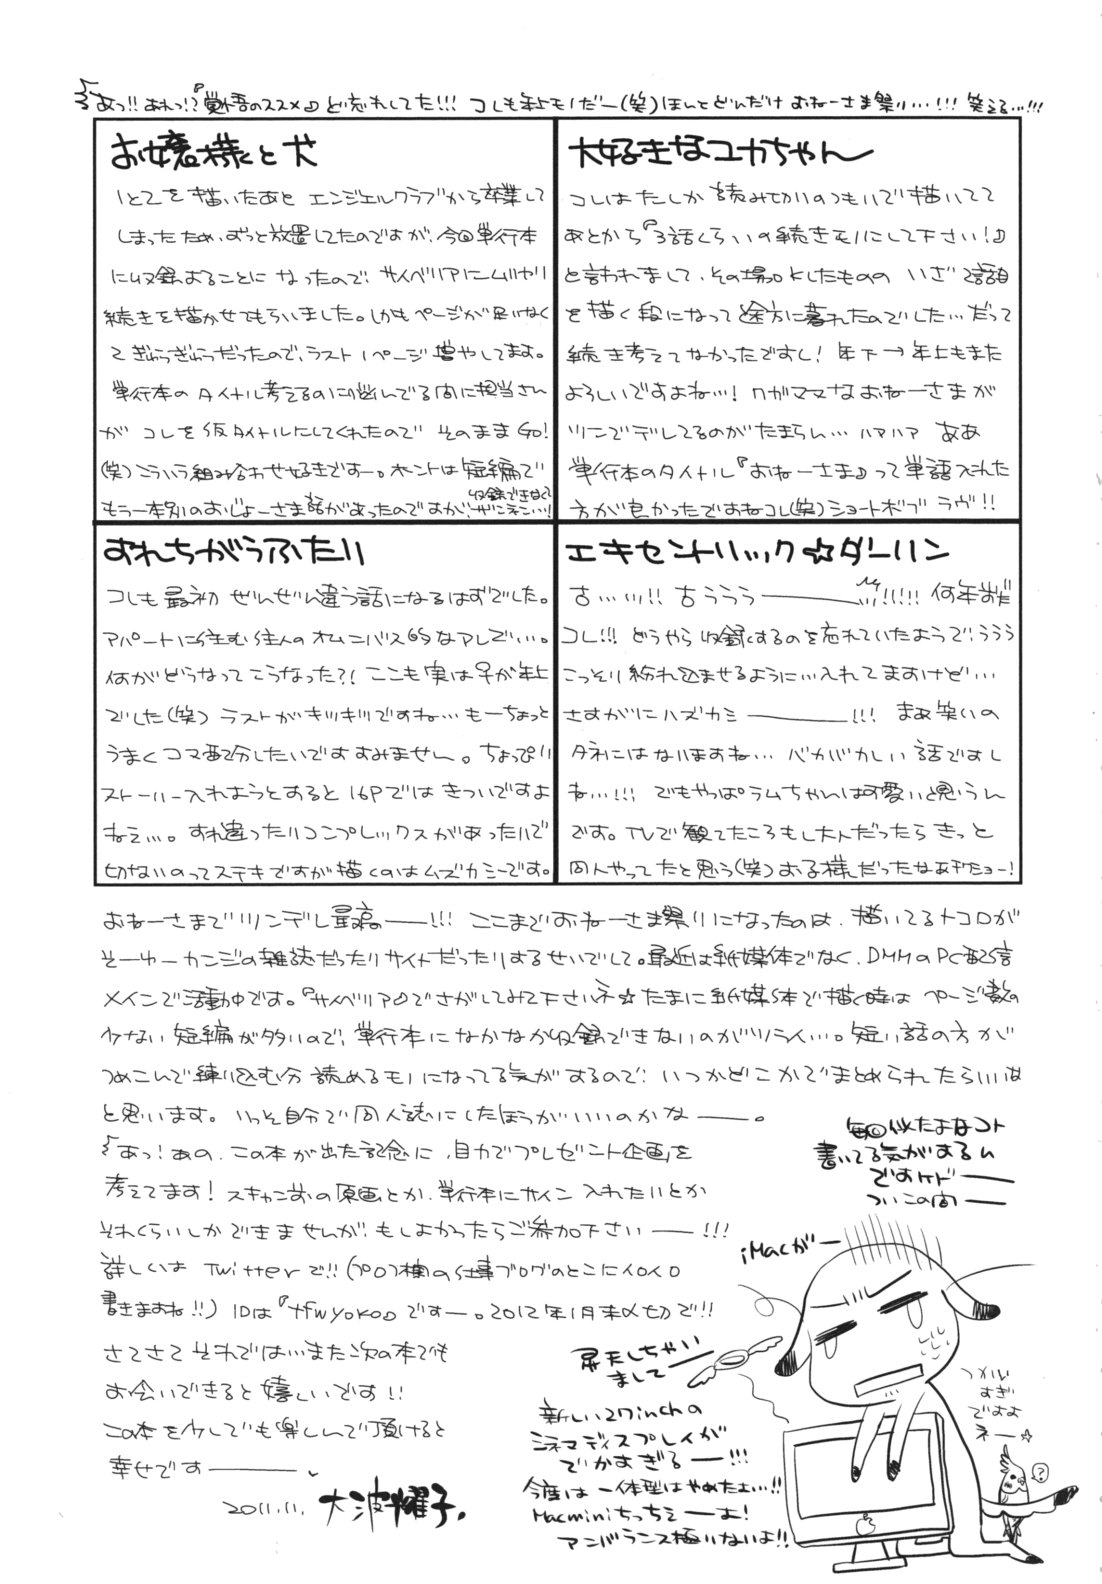 あっ!! あれっ!?『覚悟のススメ』ど忘れしてた!!! コレも年上モノだー(笑) ほんとどんだけ おねーさま祭り…!!! 笑える…!!!
お嬢様と犬
1と2を描いたあと エンジェルクラブから卒業して
しまったため、ずっと放置してたのですが、今回単行本
に収録することに なったので、サイベリアにムリヤリ
続きを描かせてもらいました。しかもページが足りなく
てぎゅうぎゅうだったので、ラスト1ページ増やしてます。
単行本のタイトル考えるのに悩んでる間に担当さん
が コレを仮タイトルにしてくれたので そのままGO!
(笑)こういう組み合わせ好きですー。ホントは短編で
もう一本別のおじょーさま話があったのですが、収録できなくてザンネン…!
大好きなユカちゃん
コレはたしか 読み切りのつもりで描いてて
あとから『3話くらいの続きモノにして下さい!』
と言われまして、その場OKしたものの いざ2話目
を描く段になって途方に暮れたのでした…だって
続き考えてなかったですし! 年下→年上もまた
よろしいですよね…! ワガママなおねーさまが
ツンでデレてるのがたまらん… ハァハァ ああ
単行本のタイトル『おねーさま』って単語入れた
方が良かったですねコレ(笑)ショートボブ ラヴ!!
すれちがうふたり
コレも最初 ぜんぜん違う話になるはずでした。
アパートに住む住人のオムニバス的なアレで…。
何がどうなってこうなった?! ここも実は♀が年上
でした(笑) ラストがキツキツですね… もーちょっと
うまくコマ配分したいですすみません。ちょっぴり
ストーリー入れようとすると16Pではきついですよ
ねぇ…。すれ違ったりコンプレックスがあったりで
切ないのってステキですが描くのはムズカシーです。
エキセントリック☆ダーリン
古…ッ!! 古ううう―――ッ!!!!! 何年前だ
コレ!!! どうやら収録するのを忘れていたようで、ううう
こっそり紛れ込ませるように…入れてますけど…
さすがにハズカシ―――!!! まあ笑いの
タネにはなりますね… バカバカしい話ですし
ね…!!! でもやっぱラムちゃんは可愛いと思うん
です。TVで観てたころもし大人だったらきっと
同人やってたと思う(笑)お子様だったなあ
おねーさまでツンデレ最高――!!! ここまでおねーさま祭りになったのは、描いてるトコロが
そーゆーカンジの雑誌だったりサイトだったりするせいでして。最近は紙媒体でなく、DMMのPC配信
メインで活動中です。『サイベリア』でさがしてみて下さいネ☆ たまに紙媒体で描く時は ページ数の
少ない 短編が多いので、単行本になかなか収録できないのがツライ…。短い話の方が
つめこんで練り込む分 読めるモノになってる気がするので、いつかどこかでまとめられたらいいなぁ
と思います。いっそ自分で同人誌にしたほうがいいのかなー―。
あっ!あの、この本が出た記念に、自力でプレゼント企画を
考えてます! スキャン前の原画とか、単行本にサイン 入れたいとか
それくらいしかできませんが、もしよかったらご参加下さい――!!!
詳しくは Twitterで!!(プロフ欄の仕事ブログのとこにイロイロ
書きますね!!) IDは『tfwyoko』ですー。2012年1月末〆切で!!
さてさて それでは…また次の本でも
お会いできると嬉しいです!!
この本を少しでも楽しんで頂けると
幸せです―――。
2011.11. 大波耀子.
毎回似たよなコト
書いてる気がするん
ですケドー―
ついこの間――
iMacがー
昇天しちゃい
まして
新しい27inchの
シネマディスプレイが
でかすぎるー―!!!
今度は一体型はやめたよ…!!
Macminiちっちぇーよ!
アンバランス極りないよ!!
つかい
すぎ
ですよ
ネー☆
?